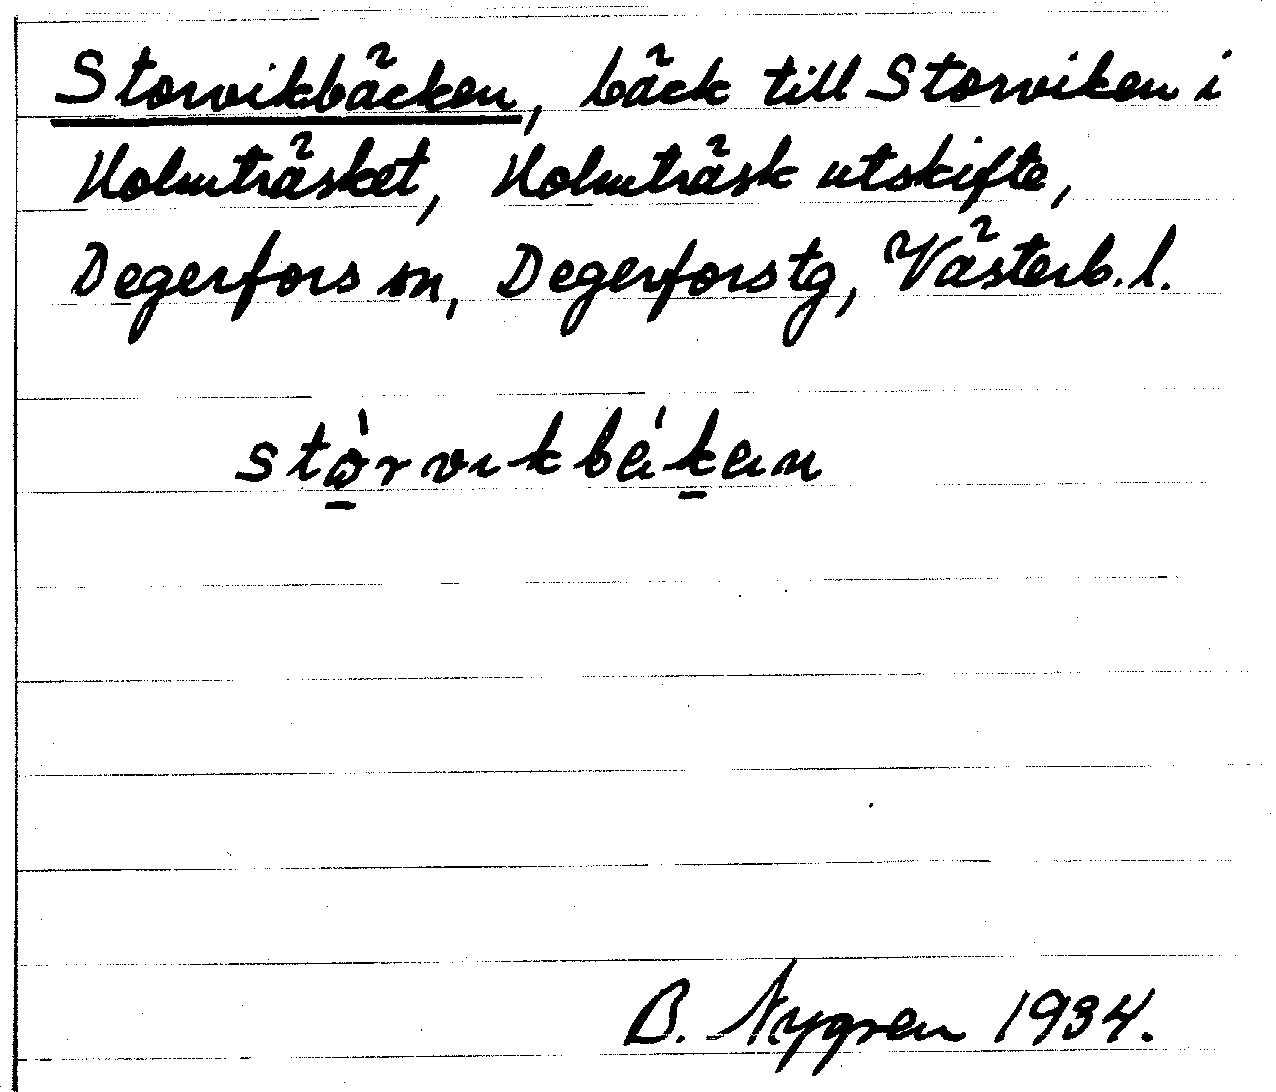 Storvikbäcken, bäck till Storviken i
Holmträsket, Holmträsk utskifte,
Degerfors sn, Degerfors tg, Västerb. l.
B. Nygren 1934.